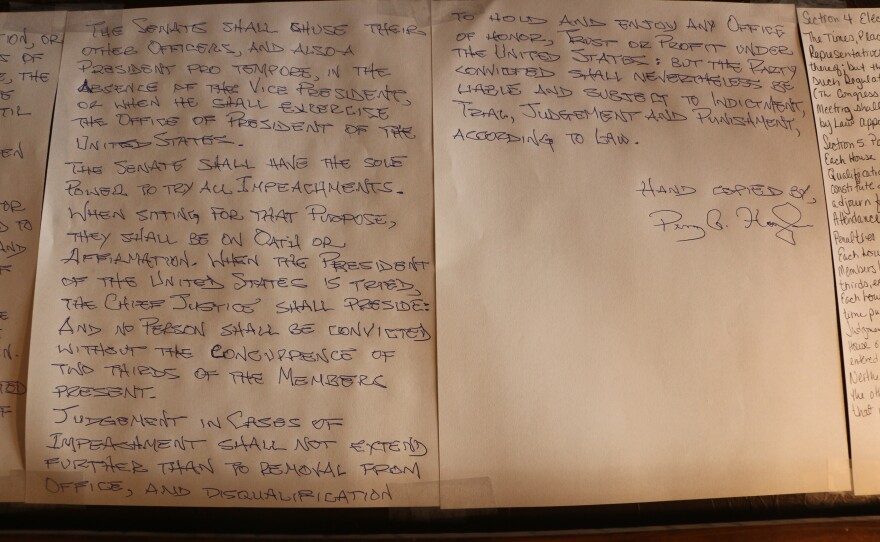 TION, OR
S OF
E, THE
TIL
EN
OR
D TO
AND
THE SENATE SHALL CHUSE THEIR
OTHER OFFICERS, AND ALSO A
PRESIDENT PRO TEMPORE, IN THE
ABSENCE OF THE VICE PRESIDENT,
OR WHEN HE SHALL EXERCISE
THE OFFICE OF PRESIDENT OF THE
UNITED STATES.
THE SENATE SHALL HAVE THE SOLE
POWER TO TRY ALL IMPEACHMENTS.
WHEN SITTING FOR THAT PURPOSE,
THEY SHALL BE ON OATH OR
AFFIRMATION. WHEN THE PRESIDENT
OF THE UNITED STATES IS TRIED,
THE CHIEF JUSTICE SHALL PRESIDE:
AND NO PERSON SHALL BE CONVICTED
WITHOUT THE CONCURRENCE OF
TWO THIRDS OF THE MEMBERS
PRESENT.
JUDGEMENT IN CASES OF
IMPEACHMENT SHALL NOT EXTEND
FURTHER THAN TO REMOVAL FROM
OFFICE, AND DISQUALIFICATION
TO HOLD AND ENJOY ANY OFFICE
OF HONOR, TRUST OR PROFIT UNDER
THE UNITED STATES: BUT THE PARTY
CONVICTED SHALL NEVERTHELESS BE
LIABLE AND SUBJECT TO INDICTMENT,
TRIAL, JUDGEMENT AND PUNISHMENT,
ACCORDING TO LAW.
HAND COPIED BY,
Section 4 Elec
The Times, Plac
Representatives
thereof; but th
such Regulat
(The Congress
Meeting shall
by Law appo
Section 5 Po
Each House
Qualificatio
constitute a
adjourn f
Attendance
Penalties
Each hou
Members
thirds, e
Each hou
time pu
Judgmen
House o
entered
Neithe
the oth
that